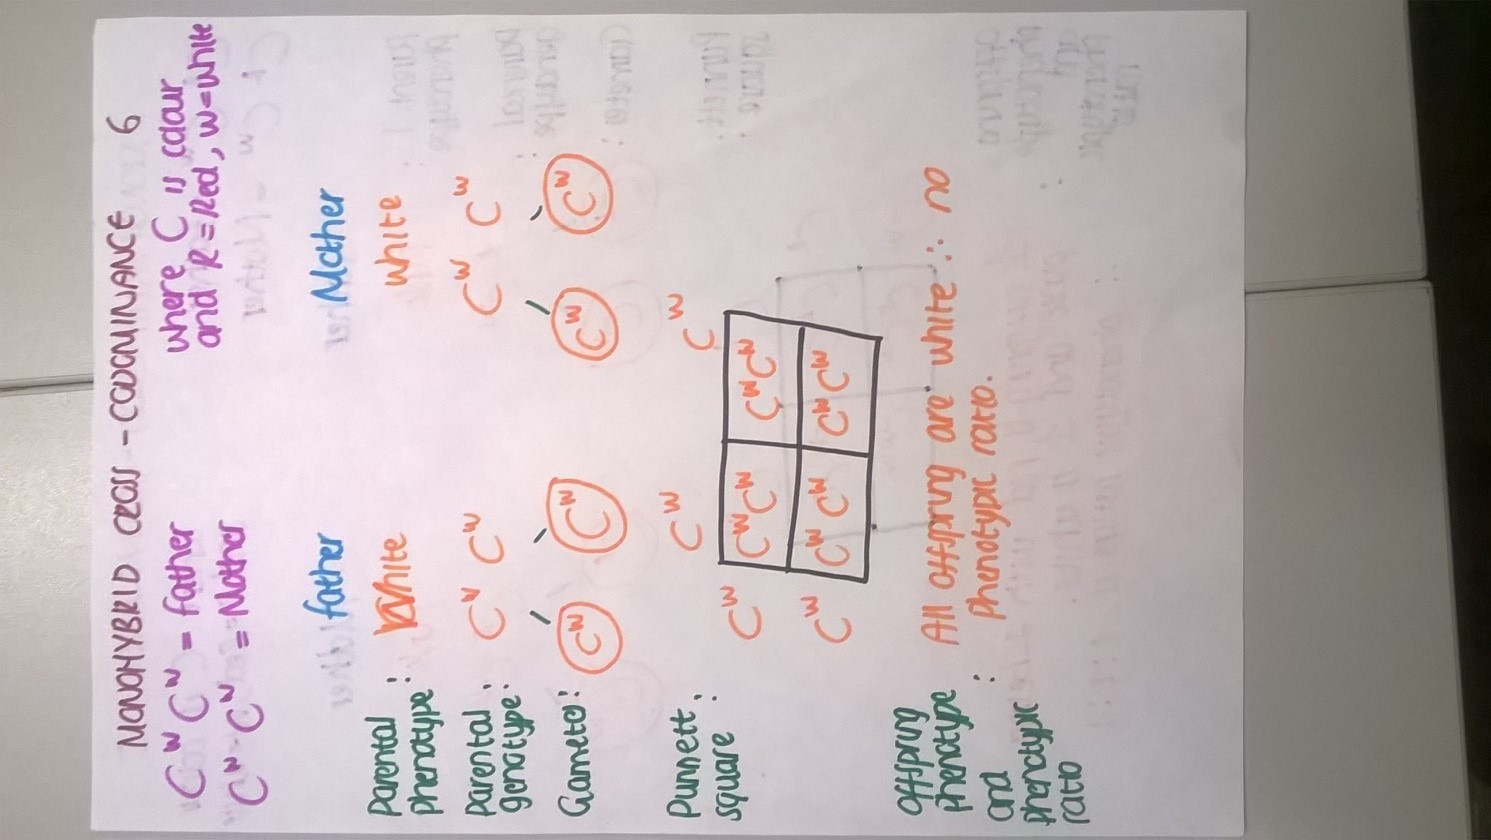 MONOHYBRID CROSS - CODOMINANCE 6
C^W C^W = father
where C is colour
C^W C^W = Mother
and R = Red, W = white
father Mother
Parental phenotype : White white
Parental genotype : C^W C^W C^W C^W
Gametes : C^W C^W C^W C^W
Punnett square :
C^W C^W
C^W C^W C^W C^W C^W
C^W C^W C^W C^W C^W
Offspring phenotype and phenotypic ratio : All offspring are white ∴ no
phenotypic ratio.